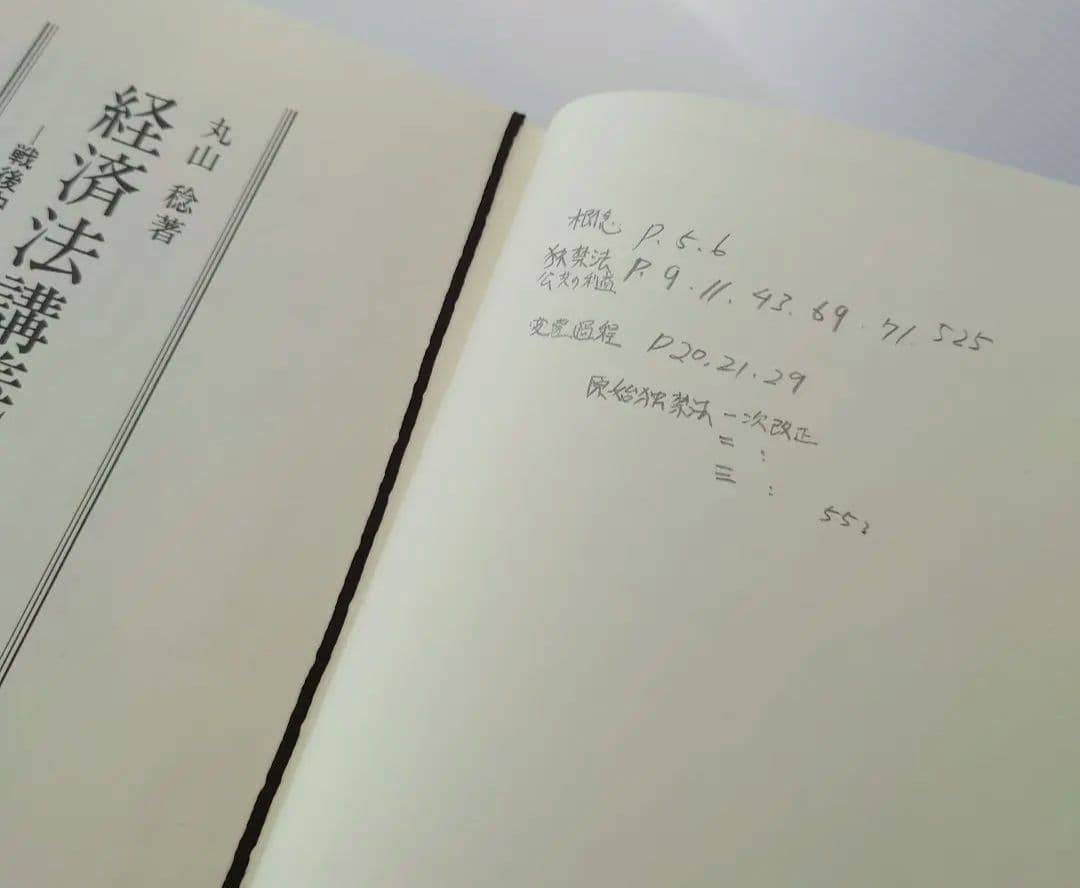 丸山 稔著
経済法講義
―戦後
概念 P.5.6
独禁法 P.9.11.43.69.71.525
公共の利益
変遷過程 P20.21.29
原始独禁法 一次改正
二 :
三 :
553